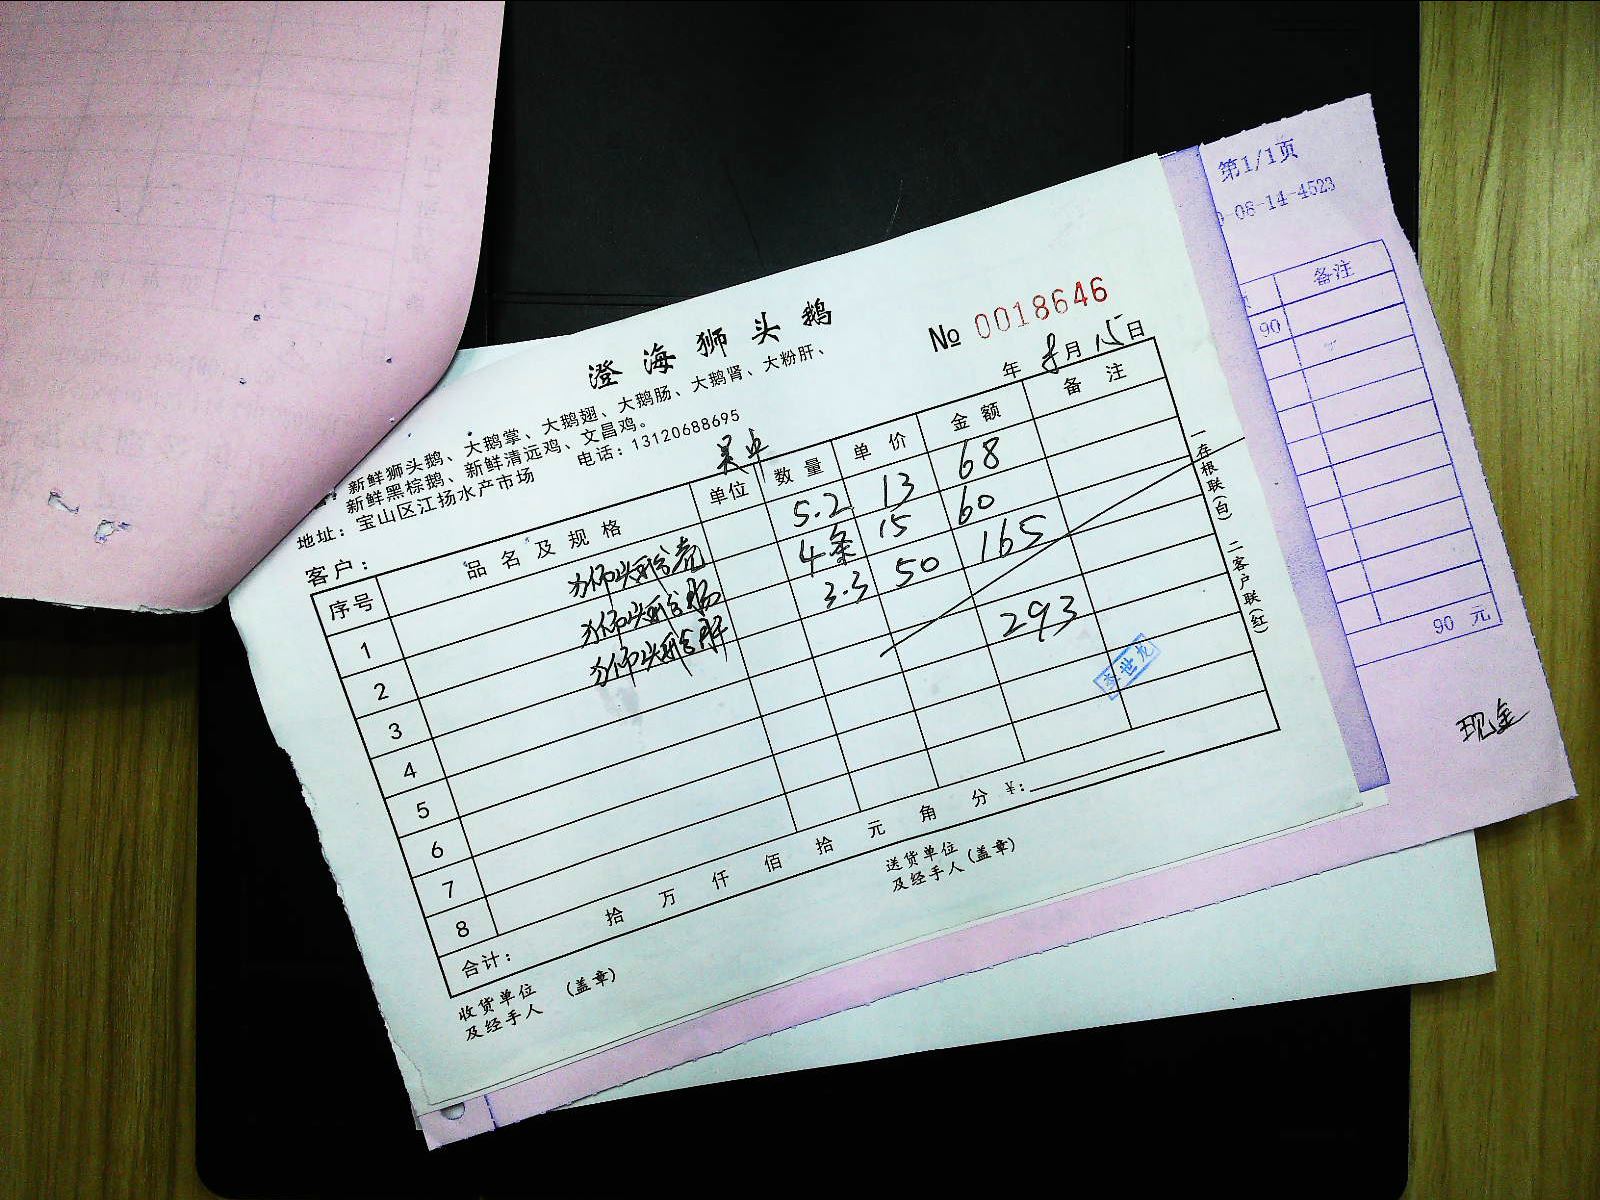 第1/1页
-08-14-4523
备注
90
90 元
现金
澄海狮头鹅
№ 0018646
新鲜狮头鹅、大鹅掌、大鹅翅、大鹅肠、大鹅肾、大粉肝、
新鲜黑棕鹅、新鲜清远鸡、文昌鸡。
地址：宝山区江扬水产市场 电话：13120688695
客户： 年 8月 15日
序号 品名及规格 单位 数量 单价 金额 备注
1 狮头鹅壳 5.2 13 68
2 狮头鹅肠 4条 15 60
3 狮头鹅肝 3.3 50 165
4 293
5
6
7
8
合计： 拾 万 仟 佰 拾 元 角 分 ¥：
李世龙
收货单位
及经手人 （盖章）
送货单位
及经手人 （盖章）
一存根联（白） 二客户联（红）